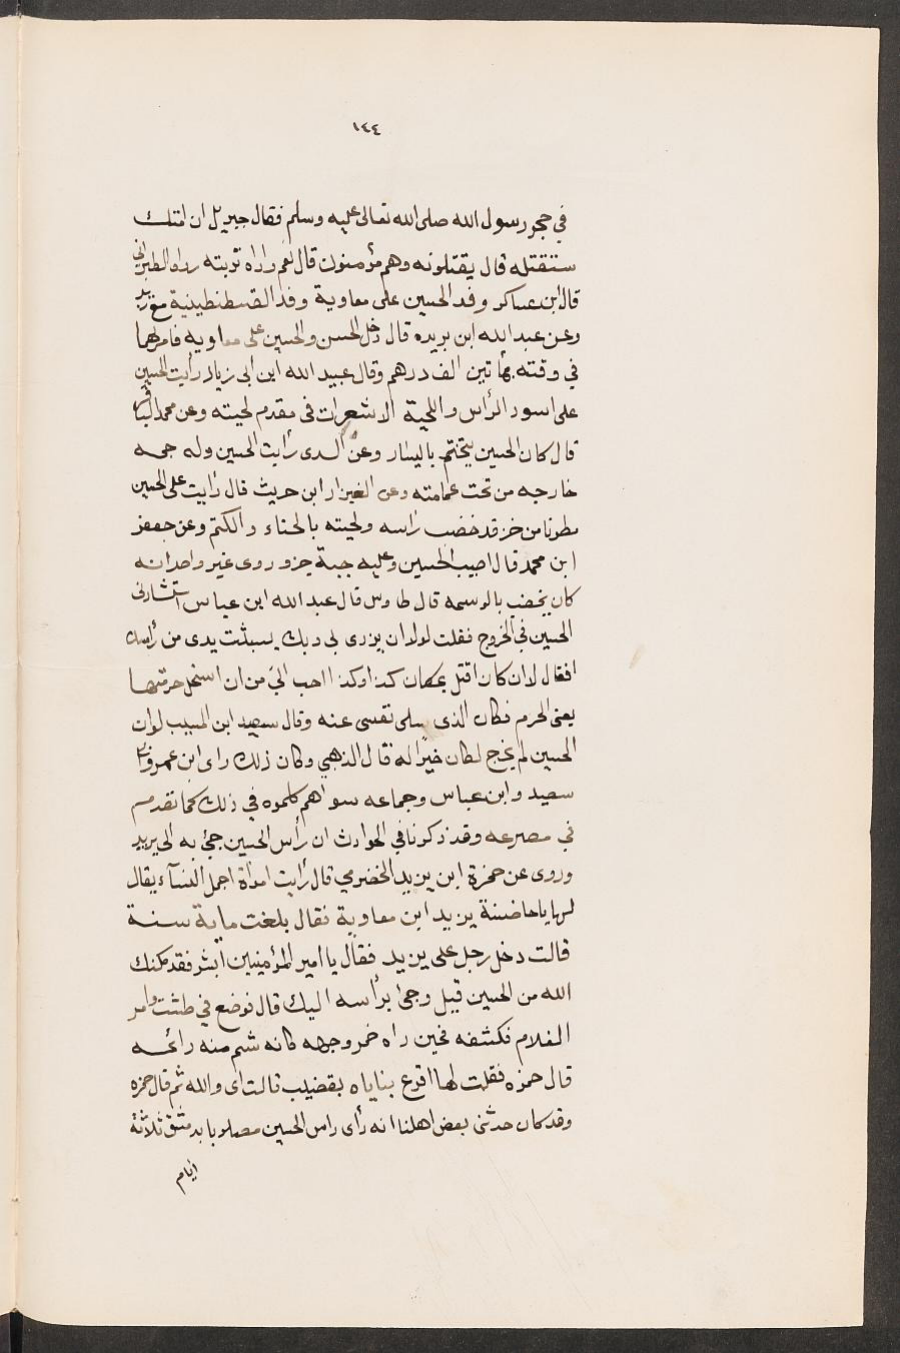 ١٤٤
في حجر رسول الله صلى الله تعالى عليه وسلم فقال جبريل ان امتك
ستقتله قال يقتلونه وهم مؤمنون قال نعم واراه تربته رواه الطبراني
قال ابن عساكر وفد الحسين على معاوية وفد القسطنطينية مع يزيد
وعن عبد الله ابن بريده قال دخل الحسن والحسين على معاويه فامر لهما
في وقته بمأتين الف درهم وقال عبيد الله ابن ابى زياد رأيت الحسين
على اسود الرأس واللحية الا شعرات فى مقدم لحيته وعن محمد الباقر
قال كان الحسين يتختم باليسار وعن السدى رأيت الحسين وله جمه
خارجه من تحت عمامته وعن الغيزار ابن حريث قال رايت على الحسين
مطرفا من خز قد خضب راسه ولحيته بالحناء والكتم وعن جعفر
ابن محمد قال اصيب الحسين وعليه جبة خز وروى غير واحد انه
كان يخضب بالوسمه قال طاوس قال عبد الله ابن عباس استشارنى
الحسين في الخروج فقلت لولا ان يزرى بى وبك لسبثت يدى من رأسك
افقال لان كان اقتل بمكان كذا وكذا احب الي من ان استحل حرمتها
يعنى الحرم فكان الذى سلى نفسى عنه وقال سعيد ابن المسيب لو ان
الحسين لم يخرج لكان خيرا له قال الذهبي وكان ذلك راى ابن عمر وابى
سعيد وابن عباس وجماعه سواهم كلموه في ذلك كما تقدم
في مصرعه وقد ذكرنا في الحوادث ان رأس الحسين جئ به الى يزيد
وروى عن حمزة ابن يزيد الحضرمي قال رأيت امرأة اجمل النسآء يقال
لها يا حاضنة يزيد ابن معاوية فقال بلغت ماية سنة
قالت دخل رجل على يزيد فقال يا امير المؤمنين أبشر فقد مكنك
الله من الحسين قيل وجئ برأسه اليك قال فوضع في طشت وامر
الغلام فكشفه فحين راه خمر وجهه كانه شم منه رائحه
قال حمزه فقلت لها اقرع بناياه بقضيب قالت اى والله ثم قال حمزه
وقد كان حدثنى بعض اهلنا انه رأى راس الحسين مصلوبا بدمشق ثلاثة
ايام